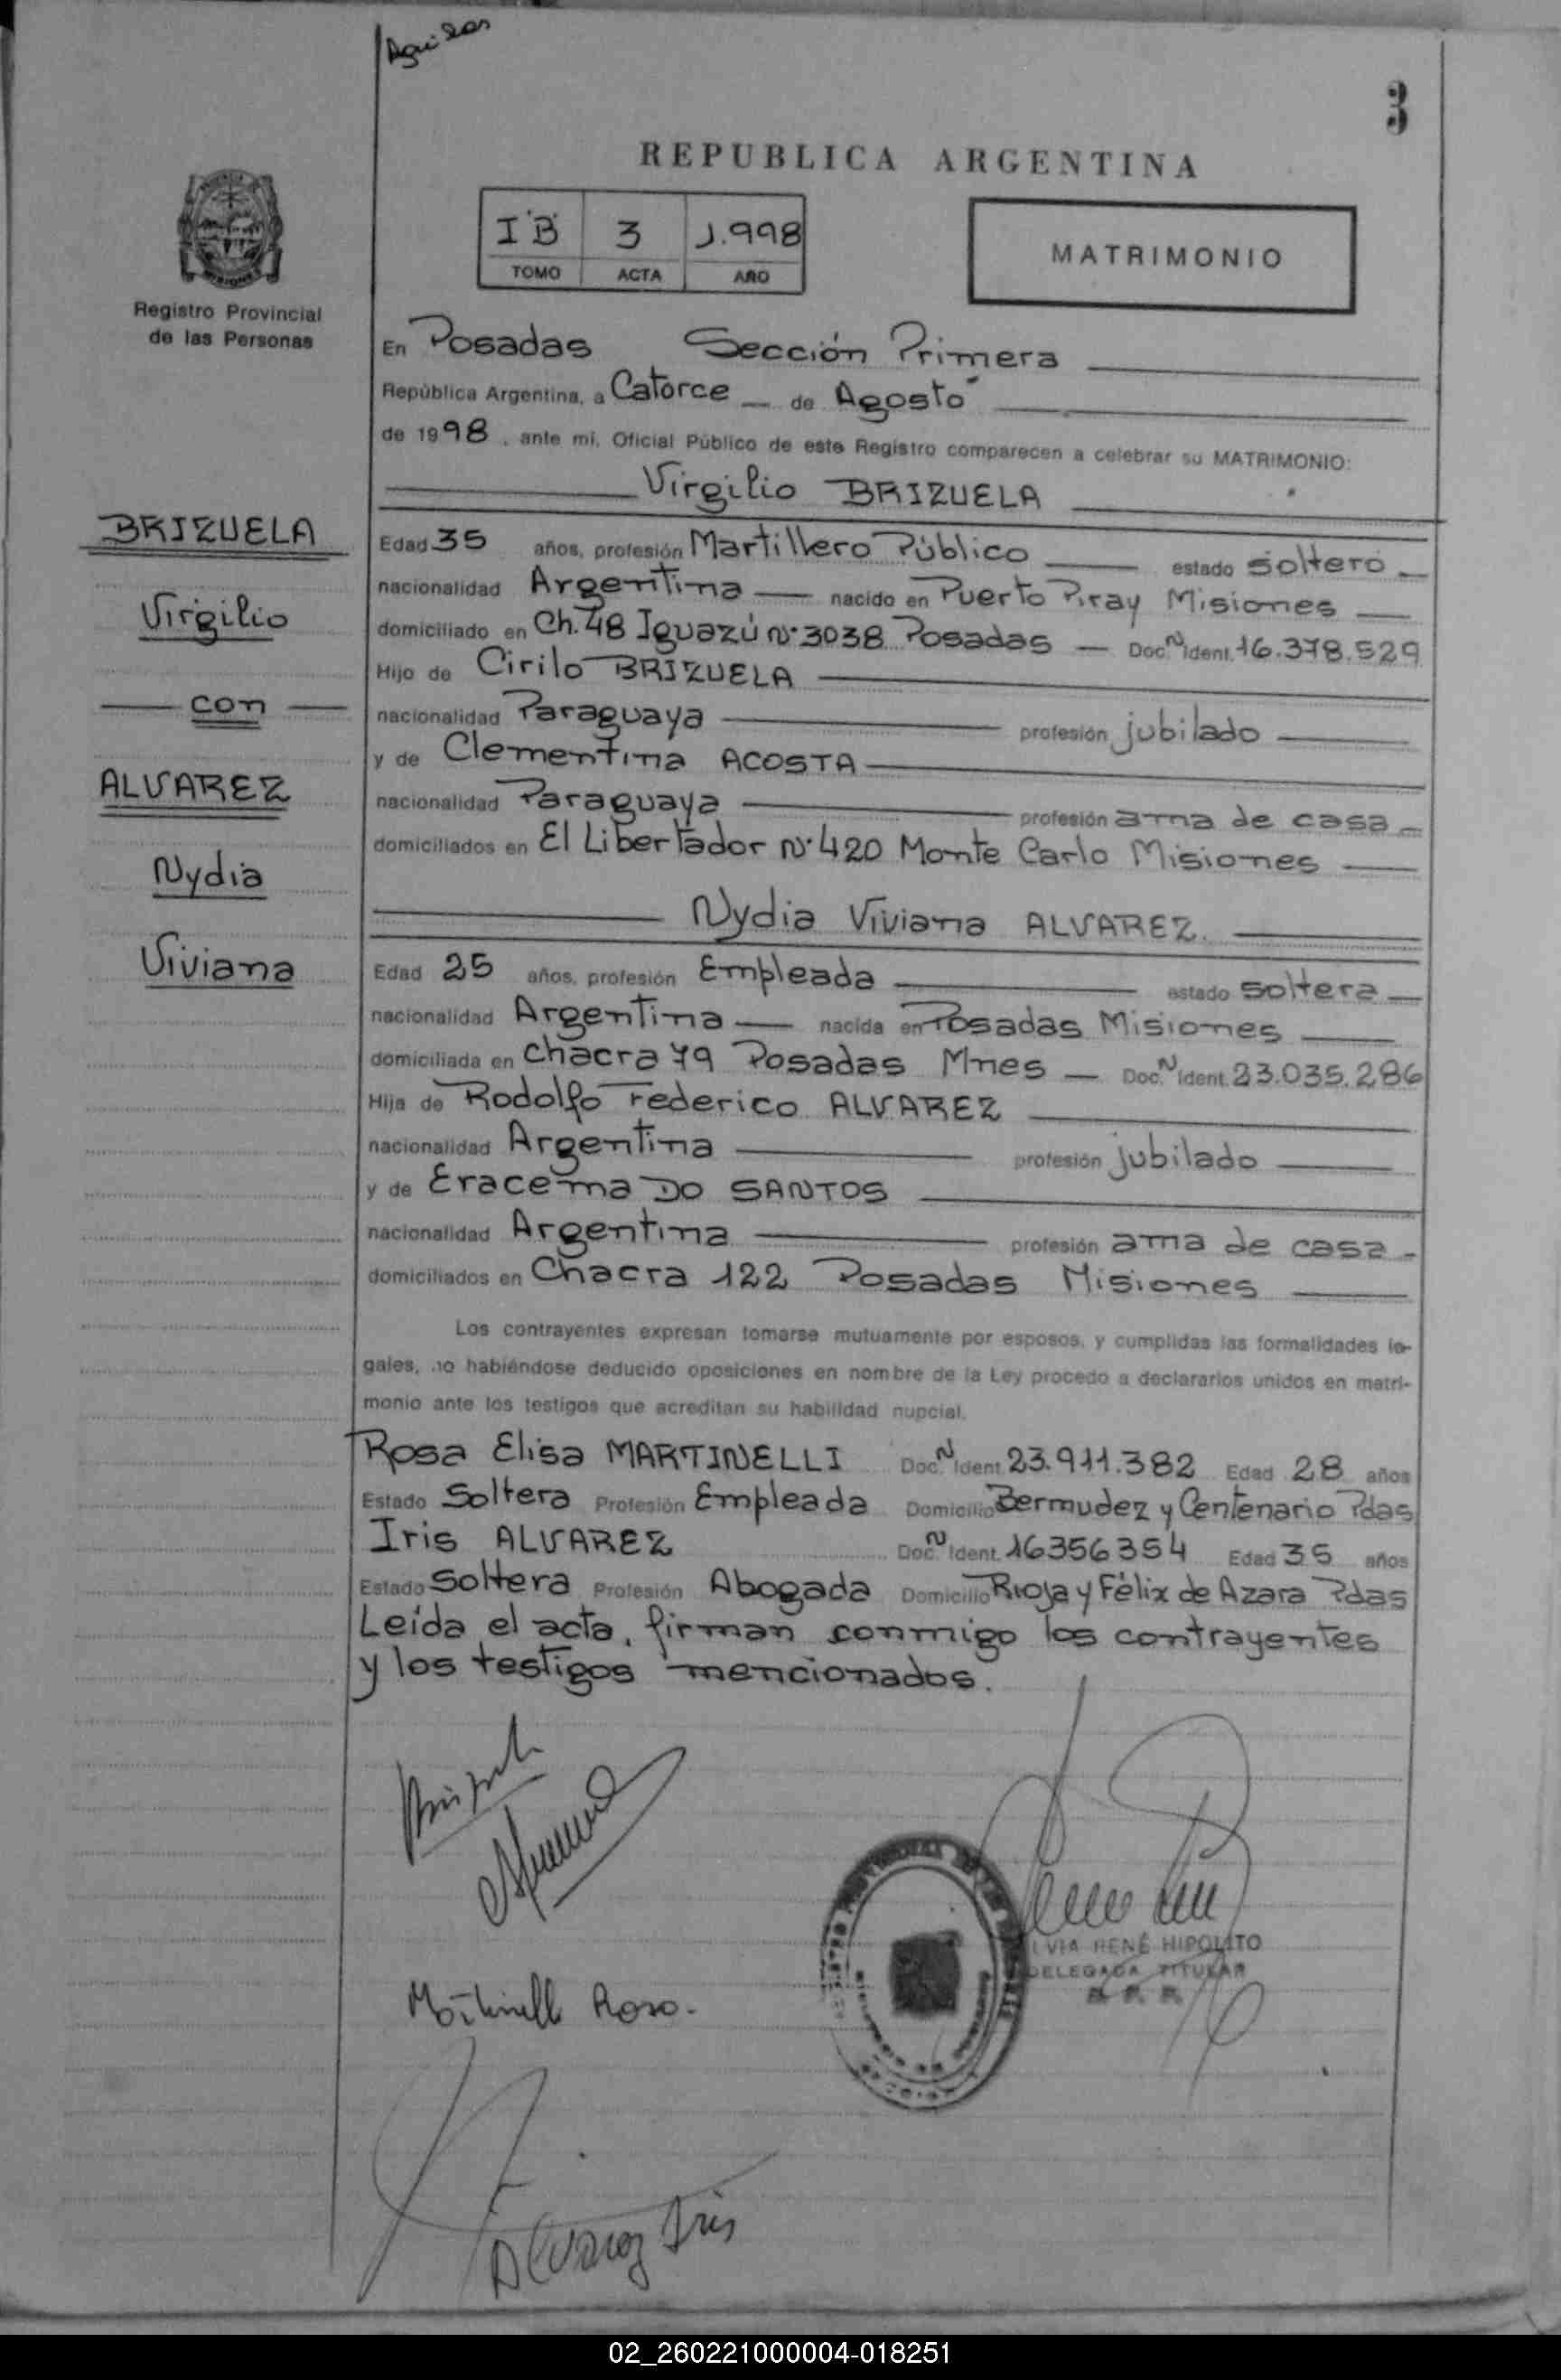 3
REPUBLICA ARGENTINA
IB 3 1.998
TOMO ACTA AÑO
MATRIMONIO
Registro Provincial
de las Personas
En Posadas Sección Primera
República Argentina, a Catorce de Agosto
de 1998, ante mí, Oficial Público de este Registro comparecen a celebrar su MATRIMONIO:
Virgilio BRIZUELA
BRIZUELA
Virgilio
con
ALVAREZ
Nydia
Viviana
Edad 35 años, profesión Martillero Público estado soltero
nacionalidad Argentina nacido en Puerto Piray Misiones
domiciliado en Ch. 48 Iguazú N° 3038 Posadas Doc. N Ident. 16.378.529
Hijo de Cirilo BRIZUELA
nacionalidad Paraguaya profesión jubilado
y de Clementina ACOSTA
nacionalidad Paraguaya profesión ama de casa
domiciliados en El Libertador N° 420 Monte Carlo Misiones
Nydia Viviana ALVAREZ.
Edad 25 años, profesión Empleada estado soltera
nacionalidad Argentina nacida en Posadas Misiones
domiciliada en Chacra 79 Posadas Mnes Doc. N Ident. 23.035.286
Hija de Rodolfo Federico ALVAREZ
nacionalidad Argentina profesión jubilado
y de Eracema DO SANTOS
nacionalidad Argentina profesión ama de casa
domiciliados en Chacra 122 Posadas Misiones
Los contrayentes expresan tomarse mutuamente por esposos, y cumplidas las formalidades le-
gales, no habiéndose deducido oposiciones en nombre de la Ley procedo a declararlos unidos en matri-
monio ante los testigos que acreditan su habilidad nupcial.
Rosa Elisa MARTINELLI Doc. N Ident. 23.911.382 Edad 28 años
Estado Soltera Profesión Empleada Domicilio Bermudez y Centenario Pdas
Iris ALVAREZ Doc. N Ident. 16356354 Edad 35 años
Estado Soltera Profesión Abogada Domicilio Rioja y Félix de Azara Pdas
Leída el acta, firman conmigo los contrayentes
y los testigos mencionados.
LVIA RENÉ HIPOLITO
DELEGADA TITULAR
R. P. P.
Martinelli Rosa.
Alvarez Iris
02_260221000004-018251